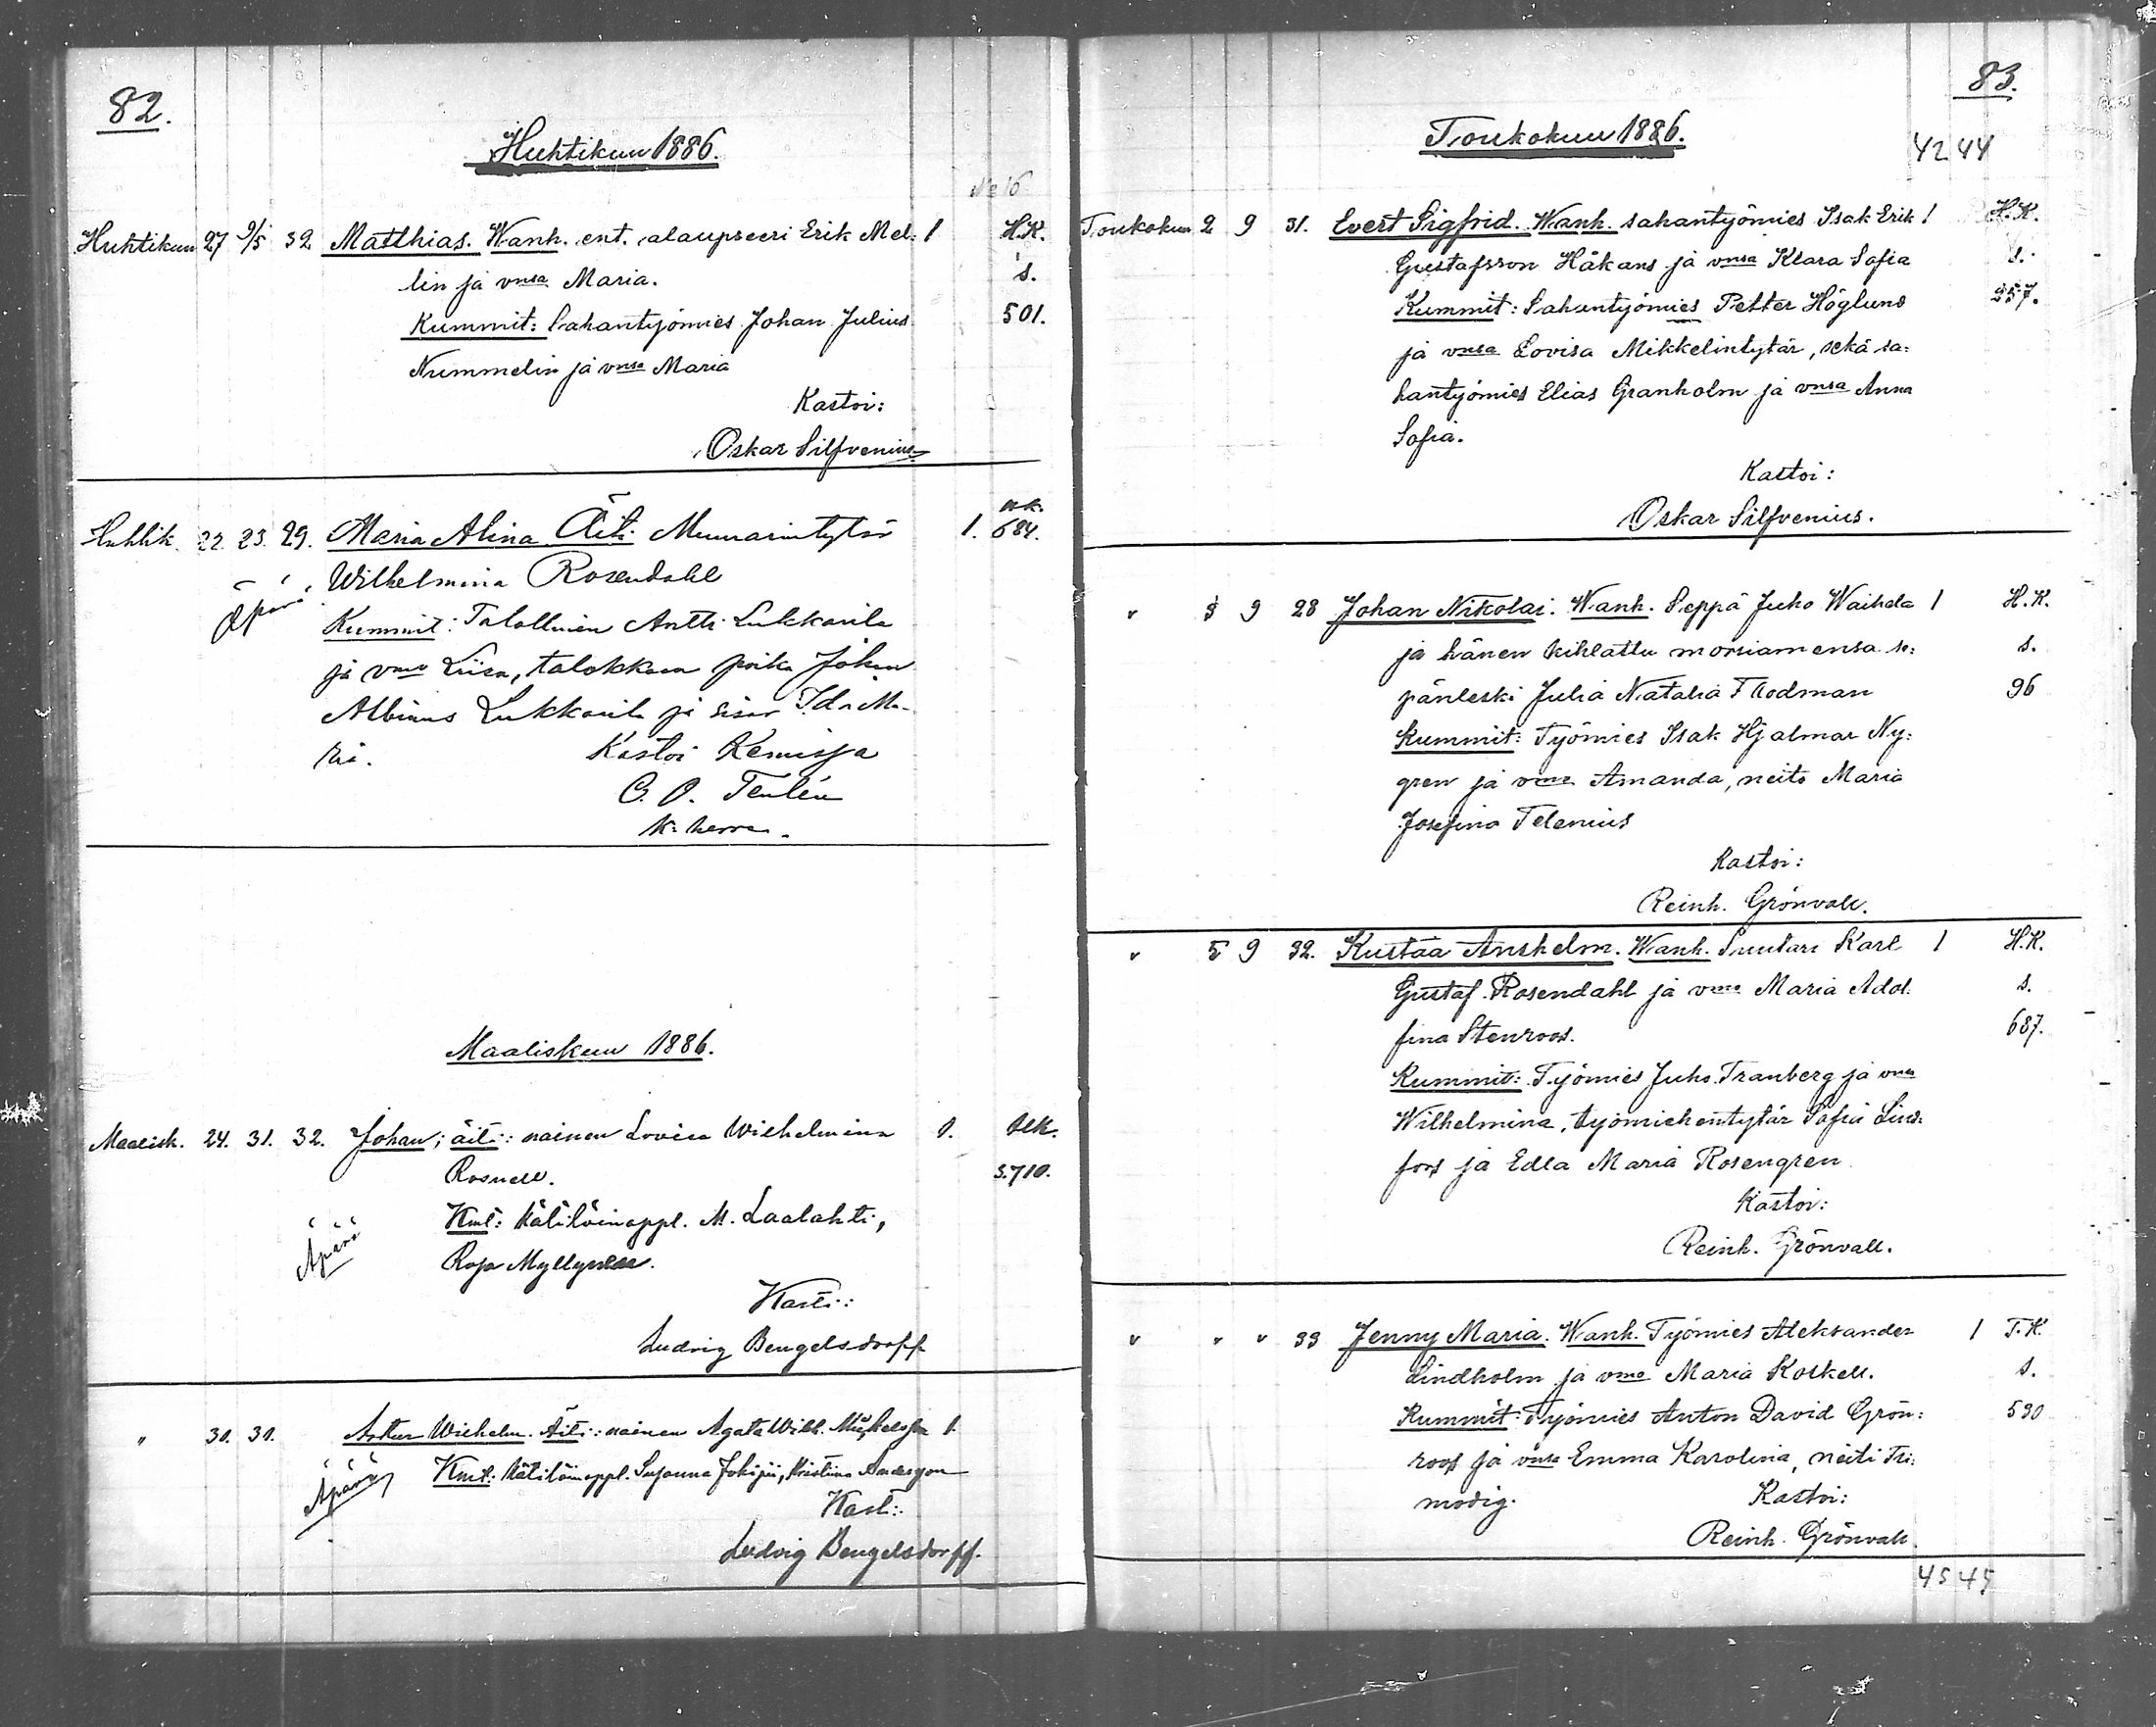 82.
Huhtikuu 1886.
Huhtikuu 27 9/5 32 Matthias. Wanh. ent. alaupseeri Erik Mel: 1 H.K.
lin ja vmsa Maria. s.
Kummit: Sahantyömies Johan Julius 501.
Nummelin ja vmsa Maria
Kastoi:
Oskar Silfvenius
Huhtik. 22. 23. 29. Maria Alina Äiti: Muurarintytär 1. 684.
Äpärä Wilhelmina Rosendahl
Kummit: Talollinen Antti Lukkarila
ja vmo Liisa, talokkaan poika Johan
Albinus Lukkarila ja sisar Ida Ma-
ria. Kastoi Kemissä
k:herra.
Maaliskuu 1886.
Maalisk. 24. 31. 32. Johan; äiti: nainen Lovisa Wilhelmina 1.
Rosnell. S.710.
Äpärä Kmt: Kätilöinoppl. M. Laalahti,
Rosa Myllynen.
Kasti:
Ludvig Bengelsdorff
" 30. 31. Artur Wilhelm. Äiti: nainen Agata Wilh. 1.
Äpärä Kmt: Kätilöinoppl. Susanna Jokipii, Kristina Anderson
Kast:
Ludvig Bengelsdorff.
83.
Toukokuu 1886.
42 44
Toukokuu 2 9 31. Evert Sigfrid. Wanh. sahantyömies Isak Erik 1 H.K.
Gustafsson Håkans ja vmsa Klara Sofia s.
Kummit: Sahantyömies Petter Höglund 257.
ja vmsa Lovisa Mikkelintytär, sekä sa:
hantyömies Elias Granholm ja vmsa Anna
Sofia.
Kastoi:
Oskar Silfvenius.
" 3 9 28 Johan Nikolai. Wanh. Seppä Juho Waihela 1 H.K.
ja hänen kihlattu morsiamensa se: s.
pänleski Julia Natalia Flodman 96
Kummit: Työmies Isak Hjalmar Ny:
gren ja vmo Amanda, neito Maria
Josefina Telenius
Kastoi:
Reinh. Grönvall.
" 5 9 32. Kustaa Anshelm. Wanh. Suutari Karl 1 H.K.
Gustaf Rosendahl ja vmo Maria Adol: s.
fina Stenroos. 687.
Kummit: Työmies Juho Tranberg ja vmsa
Wilhelmina, työmiehentytär Sofia Lind:
fors ja Edla Maria Rosengren
Kastoi:
Reinh. Grönvall.
" " " 33 Jenny Maria. Wanh. Työmies Aleksander 1 T.K.
Lindholm ja vmo Maria Koskell. s.
Kummit: Työmies Anton David Grön: 590
roos ja vmsa Emma Karolina, neiti Fri:
modig. Kastoi:
Reinh. Grönvall.
45 45